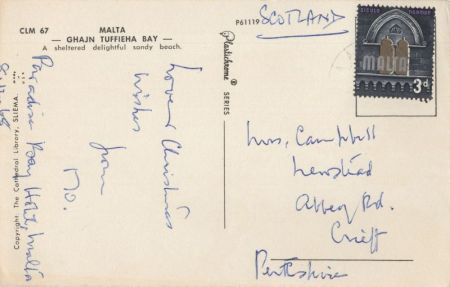 CLM 67
MALTA
— GHAJN TUFFIEHA BAY —
A sheltered delightful sandy beach.
Paradise Bay Hotel, Malta
Christmas
wishes
from
Copyright: The Cathedral Library, SLIEMA.
P61119
Plastichrome ® SERIES
SCOTLAND
MALTA
3d
Mrs. Campbell
Abbey Rd.
Crieff
Perthshire